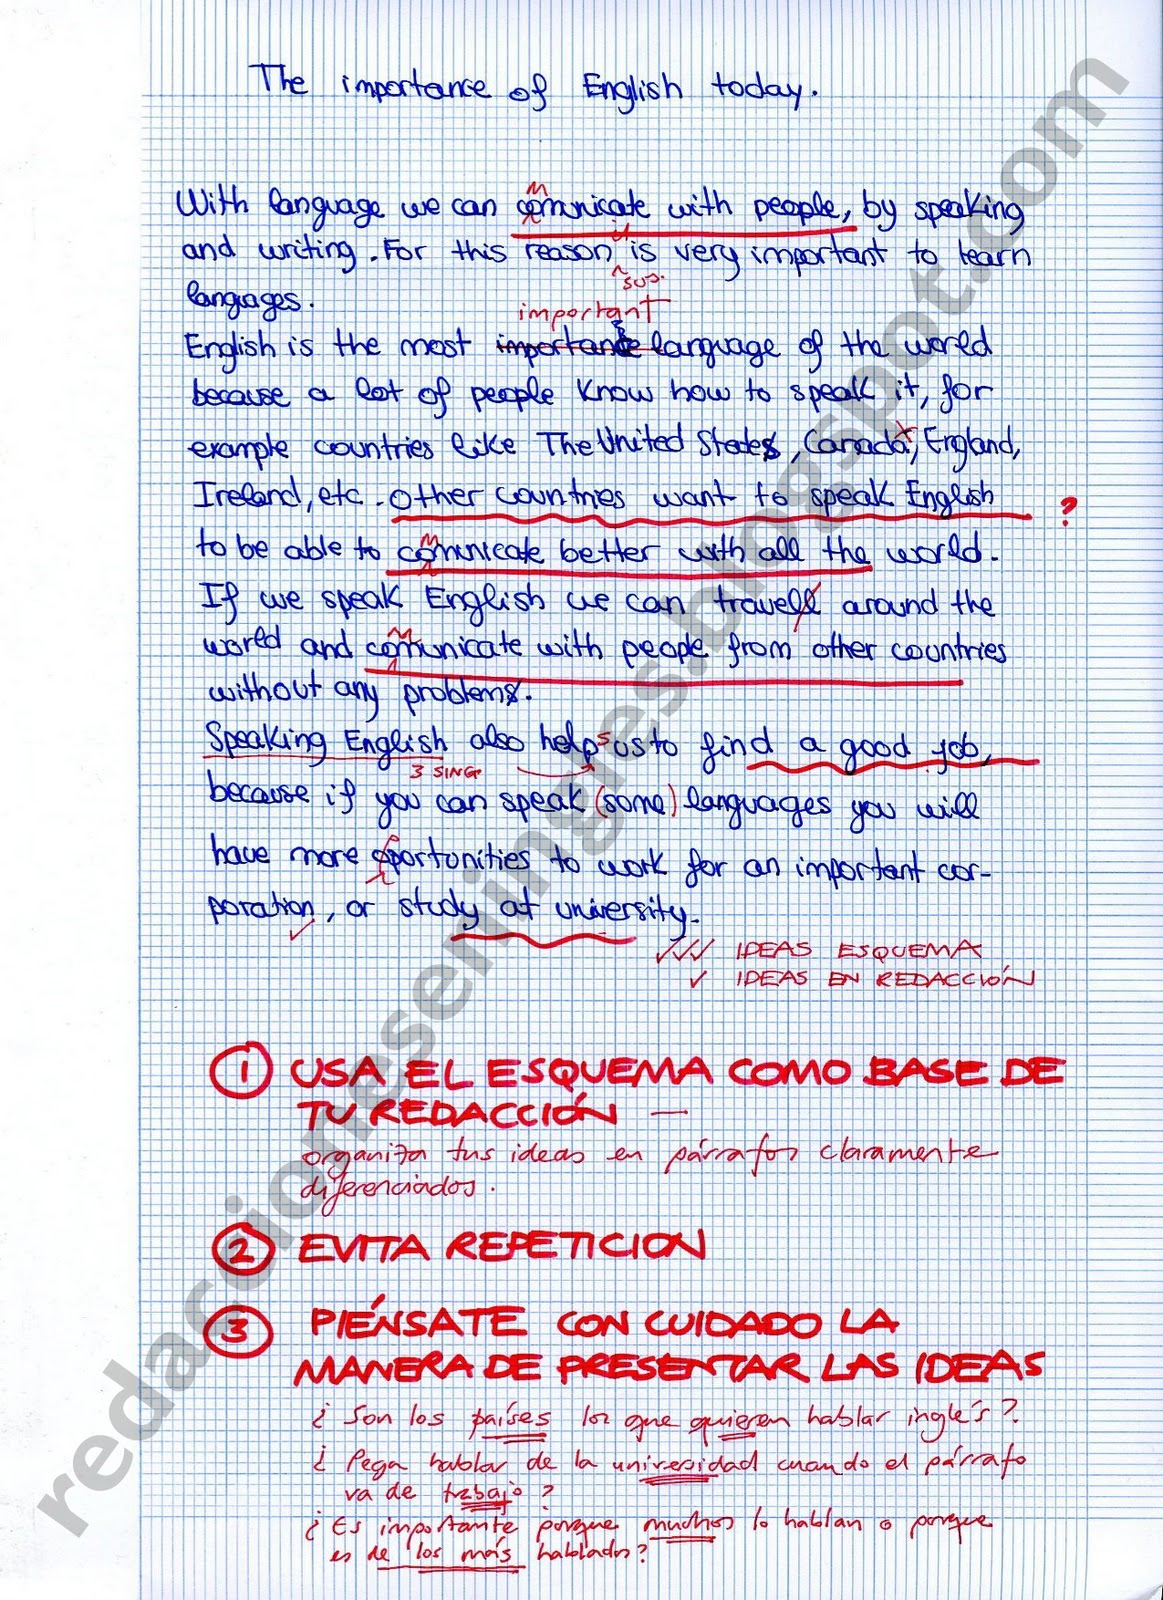 The importance of English today.
With language we can comunicate with people, by speaking
M
and writing. For this reason is very important to learn
sus.
languages.
important
English is the most importance language of the world
because a lot of people know how to speak it, for
example countries like The United States, Canada, England,
Ireland, etc. Other countries want to speak English
?
to be able to comunicate better with all the world.
M
If we speak English we can travell around the
world and comunicate with people from other countries
M
without any problems.
Speaking English also help us to find a good job,
s
3 SING
because if you can speak (some) languages you will
have more oportunities to work for an important cor-
p
poration, or study at university.
✓✓✓ IDEAS ESQUEMA
✓ IDEAS EN REDACCIÓN
1 USA EL ESQUEMA COMO BASE DE
TU REDACCIÓN —
organiza tus ideas en párrafos claramente
diferenciados.
2 EVITA REPETICION
3 PIÉNSATE CON CUIDADO LA
MANERA DE PRESENTAR LAS IDEAS
¿Son los países los que quieren hablar inglés?
¿Pega hablar de la universidad cuando el párrafo
va de trabajo?
¿Es importante porque muchos lo hablan o porque
es de los más hablados?
redaccioneseningles.blogspot.com